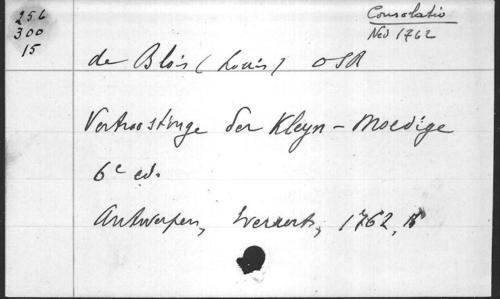 256
300
15
Consolatio
Ned 1762
de Blois (Louis) OSB
Vertroostinge der Kleyn-Moedige
6e ed.
Antwerpen, Everaerts, 1762,